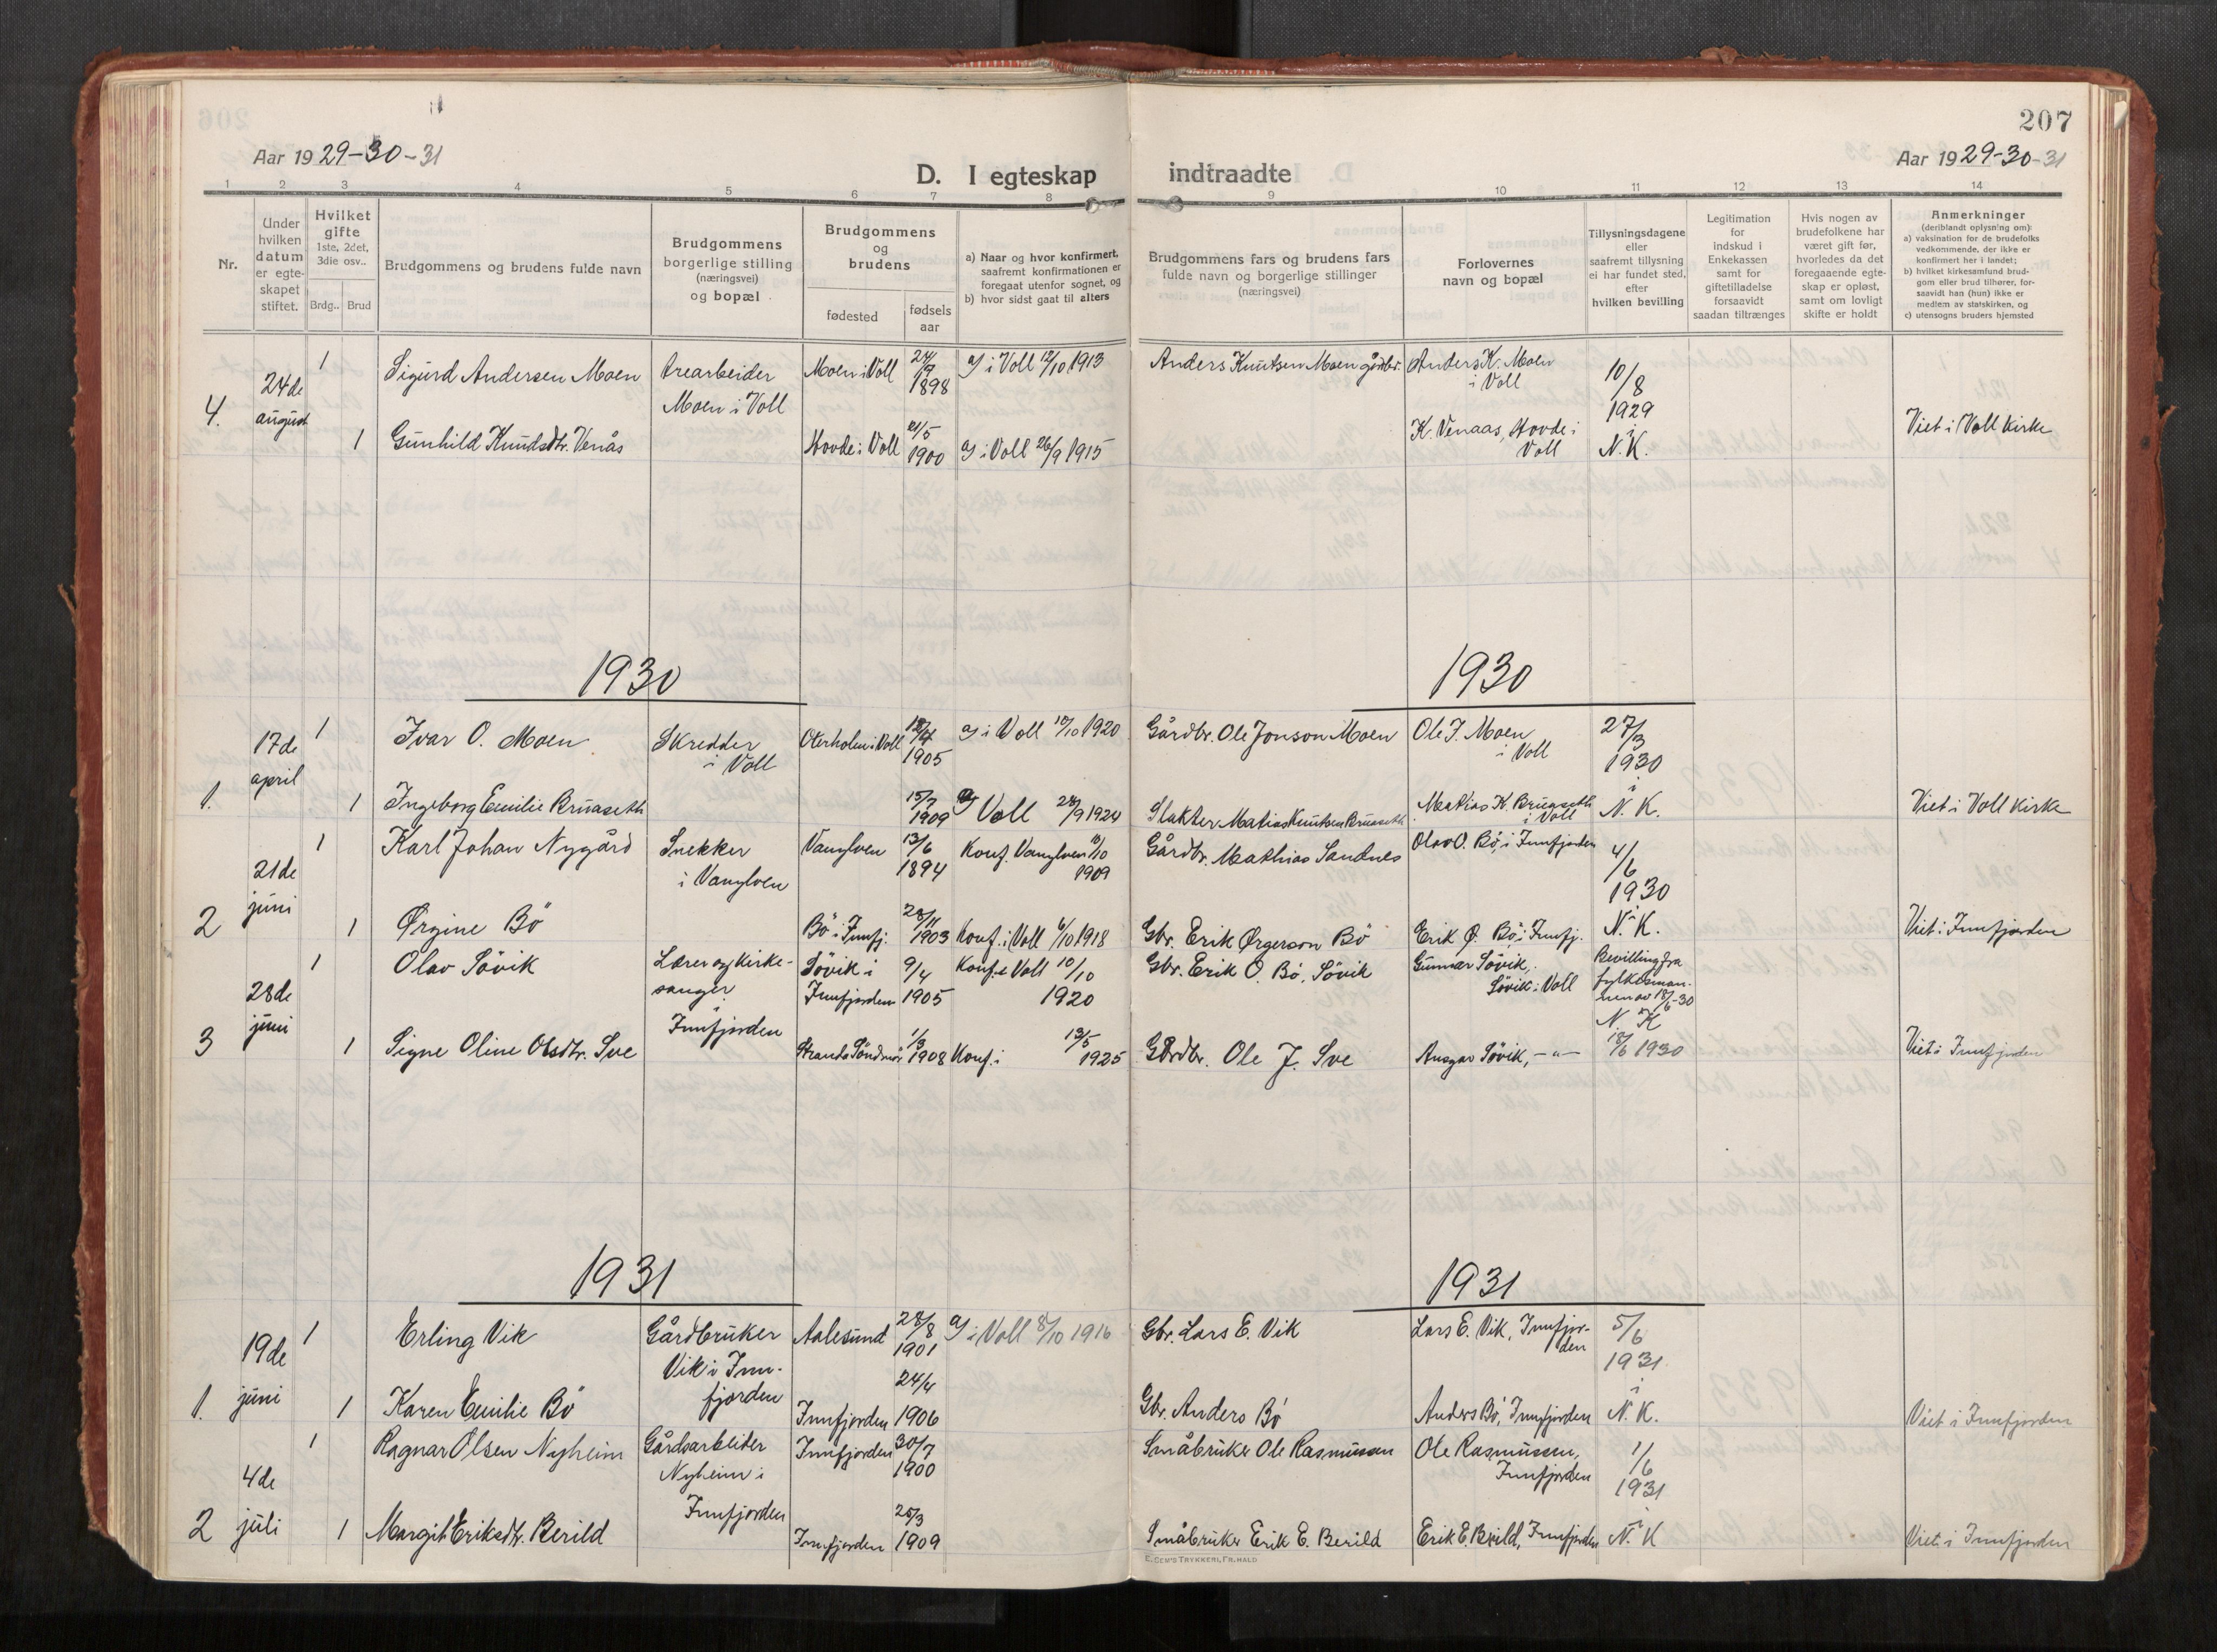 207
Aar 1929-30-31
Aar 1929-30-31
D. I egteskap indtraadte
1 2 3 4 5 6 7 8 9 10 11 12 13 14
Nr.
Under hvilken datum er egteskapet stiftet.
Hvilket gifte
1ste, 2det, 3die osv..
Brdg.. Brud
Brudgommens og brudens fulde navn
Brudgommens borgerlige stilling (næringsvei) og bopæl
Brudgommens og brudens
fødested
fødsels aar
a) Naar og hvor konfirmert, saafremt konfirmationen er foregaat utenfor sognet, og
b) hvor sidst gaat til alters
Brudgommens fars og brudens fars fulde navn og borgerlige stillinger (næringsvei)
Forlovernes navn og bopæl
Tillysningsdagene eller saafremt tillysning ei har fundet sted, efter hvilken bevilling
Legitimation for indskud i Enkekassen samt for giftetilladelse forsaavidt saadan tiltrænges
Hvis nogen av brudefolkene har været gift før, hvorledes da det foregaaende egteskap er opløst, samt om lovligt skifte er holdt
Anmerkninger
(deriblandt oplysning om):
a) vaksination for de brudefolks vedkommende, der ikke er konfirmert her i landet;
b) hvilket kirkesamfund brudgom eller brud tilhører, forsaavidt han (hun) ikke er medlem av statskirken, og
c) utensogns bruders hjemsted
4. 24de august
1 Sigurd Andersen Moen trearbeider Moen i Voll Moen i Voll 1898 a) i Voll 12/10 1913 Anders Knutsen Moen gårdbr. Anders K. Moen i Voll 10/8 1929 i N. K.
1 Gunhild Knudsdtr. Venås Hovde i Voll 21/5 1900 a) i Voll 26/9 1915 K. Venaas, Hovde i Voll Viet i Voll kirke
1930 1930
1. 17de april
1 Ivar O. Moen Skredder i Voll Oterholm i Voll 1905 a) i Voll 1920 Gårdbr. Ole Jonson Moen Ole J. Moen i Voll 27/3 1930 i N. K.
1 Ingeborg Emilie Bruaseth 15/7 1909 a) Voll 28/9 1924 Slakter Matias Knutsen Bruaseth Matias K. Bruaseth i Voll Viet i Voll kirke
2 21de juni
1 Karl Johan Nygård Snekker i Vanylven Vanylven 13/6 1894 Konf. Vanylven 1909 Gårdbr. Mathias Sandnes Olav O. Bö, i Innfjorden 4/6 1930 i N. K.
1 Ørgine Bö Bö i Innfj. 28/11 1903 Konf. i Voll 6/10 1918 Gbr. Erik Ørgerson Bö Erik Ø. Bö, i Innfj. Viet i Innfjorden
3 28de juni
1 Olav Sövik Lærer og kirkesanger i Innfjorden Sövik i Innfjorden 9/4 1905 Konf. i Voll 10/10 1920 Gbr. Erik O. Bö, Sövik Gunnar Sövik, Sövik i Voll Bevilling fra fylkesmannen av 18/6-30 N. K
1 Signe Oline Olsdtr. Sve Stranda Söndmör 1/3 1908 Konf. i 13/5 1925 Gårdbr. Ole J. Sve Ansgar Sövik, -"- 18/6 1930 Viet i Innfjorden
1931 1931
1. 19de juni
1 Erling Vik Gårdbruker Vik i Innfjorden Aalesund 28/8 1901 a) i Voll 8/10 1916 Gbr. Lars E. Vik Lars E. Vik, Innfjorden 5/6 1931 i N. K.
1 Karen Emilie Bö Innfjorden 24/4 1906 Gbr. Anders Bö Anders Bö, Innfjorden Viet i Innfjorden
2 4de juli
1 Ragnar Olsen Nyheim Gårdsarbeider Nyheim i Innfjorden Innfjorden 30/7 1900 Småbruker Ole Rasmussen Ole Rasmussen, Innfjorden 1/6 1931 i N. K
1 Margit Eriksdtr. Berild Innfjorden 25/3 1909 Småbruker Erik E. Berild Erik E. Berild, Innfjorden Viet i Innfjorden
E. SEM'S TRYKKERI, FR.HALD